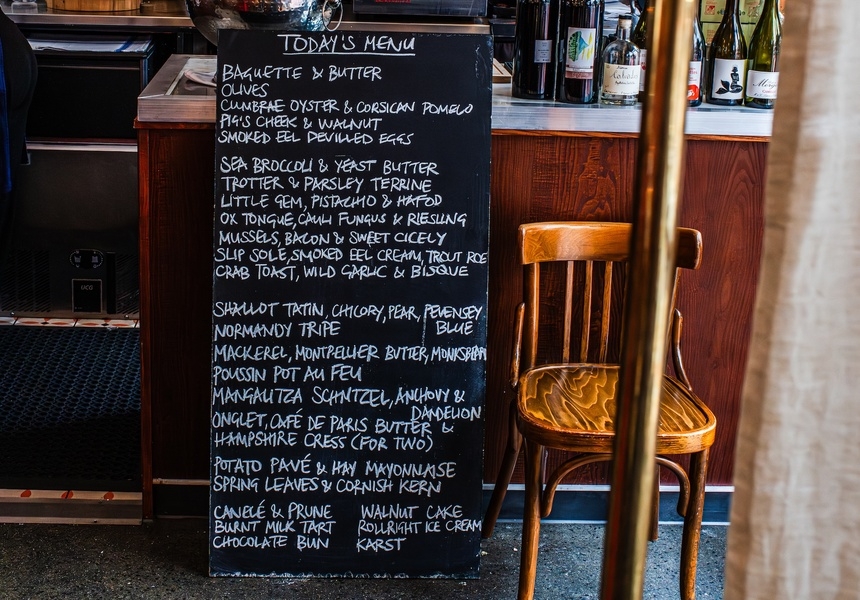 TODAY'S MENU
BAGUETTE & BUTTER
OLIVES
CUMBRAE OYSTER & CORSICAN POMELO
PIG'S CHEEK & WALNUT
SMOKED EEL DEVILLED EGGS
SEA BROCCOLI & YEAST BUTTER
TROTTER & PARSLEY TERRINE
LITTLE GEM, PISTACHIO & HAFOD
OX TONGUE, CAULI FUNGUS & RIESLING
MUSSELS, BACON & SWEET CICELY
SLIP SOLE, SMOKED EEL CREAM, TROUT ROE
CRAB TOAST, WILD GARLIC & BISQUE
SHALLOT TATIN, CHICORY, PEAR, PEVENSEY
BLUE
NORMANDY TRIPE
MACKEREL, MONTPELLIER BUTTER, MONKSBEARD
POUSSIN POT AU FEU
MANGALITZA SCHNITZEL, ANCHOVY &
DANDELION
ONGLET, CAFÉ DE PARIS BUTTER &
HAMPSHIRE CRESS (FOR TWO)
POTATO PAVÉ & HAY MAYONNAISE
SPRING LEAVES & CORNISH KERN
CANELÉ & PRUNE
BURNT MILK TART
CHOCOLATE BUN
WALNUT CAKE
ROLLRIGHT ICE CREAM
KARST